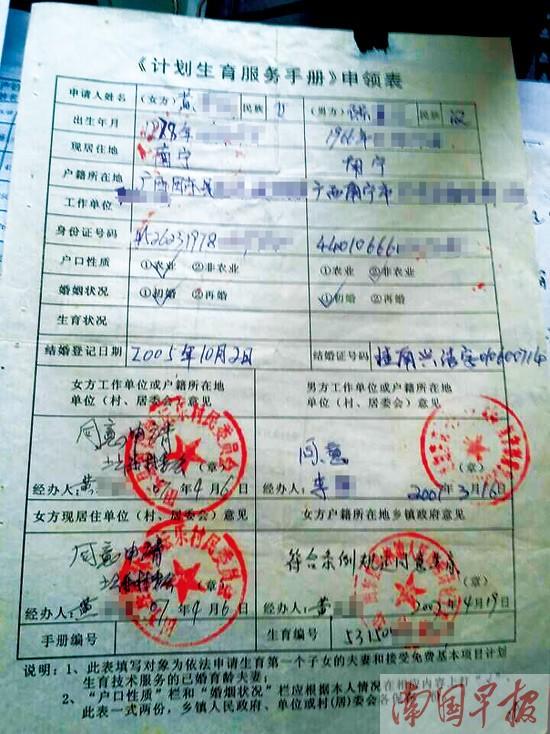 《计划生育服务手册》申领表
申请人姓名 (女方) 黄 民族 (男方) 陈 民族 汉
出生年月 1978年 1966年
现居住地 南宁 南宁
户籍所在地 广西田东县 广西南宁市
工作单位
身份证号码 45262319780
户口性质 ①农业 ②非农业 ①农业 ②非农业
婚姻状况 ①初婚 ②再婚 ①初婚 ②再婚
生育状况
结婚登记日期 2005年10月2日 结婚证号码
女方工作单位或户籍所在地
单位(村、居委会)意见
男方工作单位或户籍所在地
单位(村、居委会)意见
同意申请
(章)
经办人:黄 07年4月6日
同意
(章)
经办人:李 2007年3月16日
女方现居住单位(村、居委会)意见
女方户籍所在地乡镇政府意见
同意申请
(章)
经办人:黄 07年4月6日
符合条例规定同意
(章)
经办人:黄 2007年4月19日
手册编号 生育编号
说明:1、此表填写对象为依法申请生育第一个子女的夫妻和接受免费基本项目计划
生育技术服务的已婚育龄夫妻;
2、“户口性质”栏和“婚姻状况”栏应根据本人情况在相应内容上打“√”。
此表一式两份,乡镇人民政府、单位或村(居)委会各
南国早报